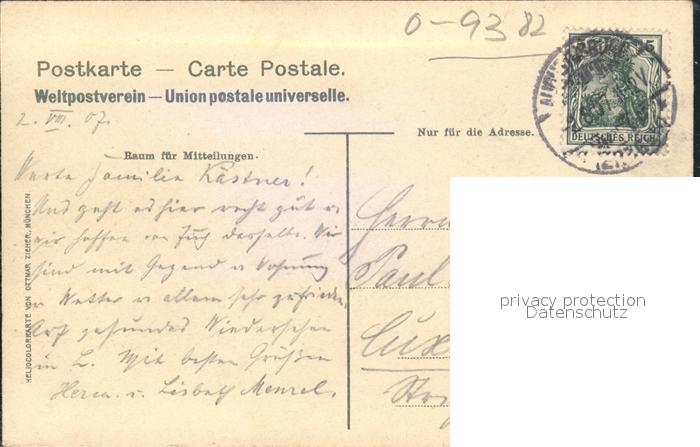 0-93 82
Postkarte — Carte Postale.
Weltpostverein – Union postale universelle.
2. VIII. 07.
Nur für die Adresse.
Raum für Mitteilungen.
5
DEUTSCHES REICH
Werte Familie Kästner!
Uns geht es hier recht gut u.
wir hoffen von Euch dasselbe. Wir
sind mit Gegend u Wohnung
u Wetter u allem sehr zufrieden.
Auf gesundes Wiedersehen
in L. Mit besten Grüßen
Herm. u. Lisbeth Menzel.
Herrn
Paul
HELIOCOLORKARTE VON OTTMAR ZIEHER, MÜNCHEN
privacy protection
Datenschutz